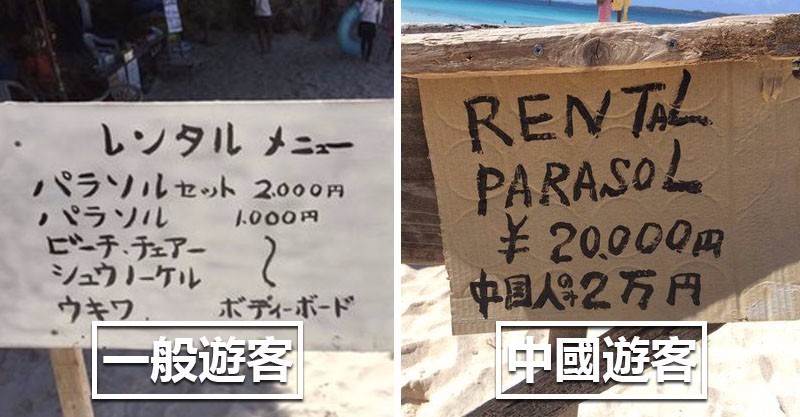 レンタル メニュー
パラソルセット 2.000円
パラソル 1.000円
ビーチ.チェアー
シュウノーケル
ウキワ. ボディーボード
一般遊客
RENTAL
PARASOL
¥ 20.000円
中国人のみ2万円
中國遊客